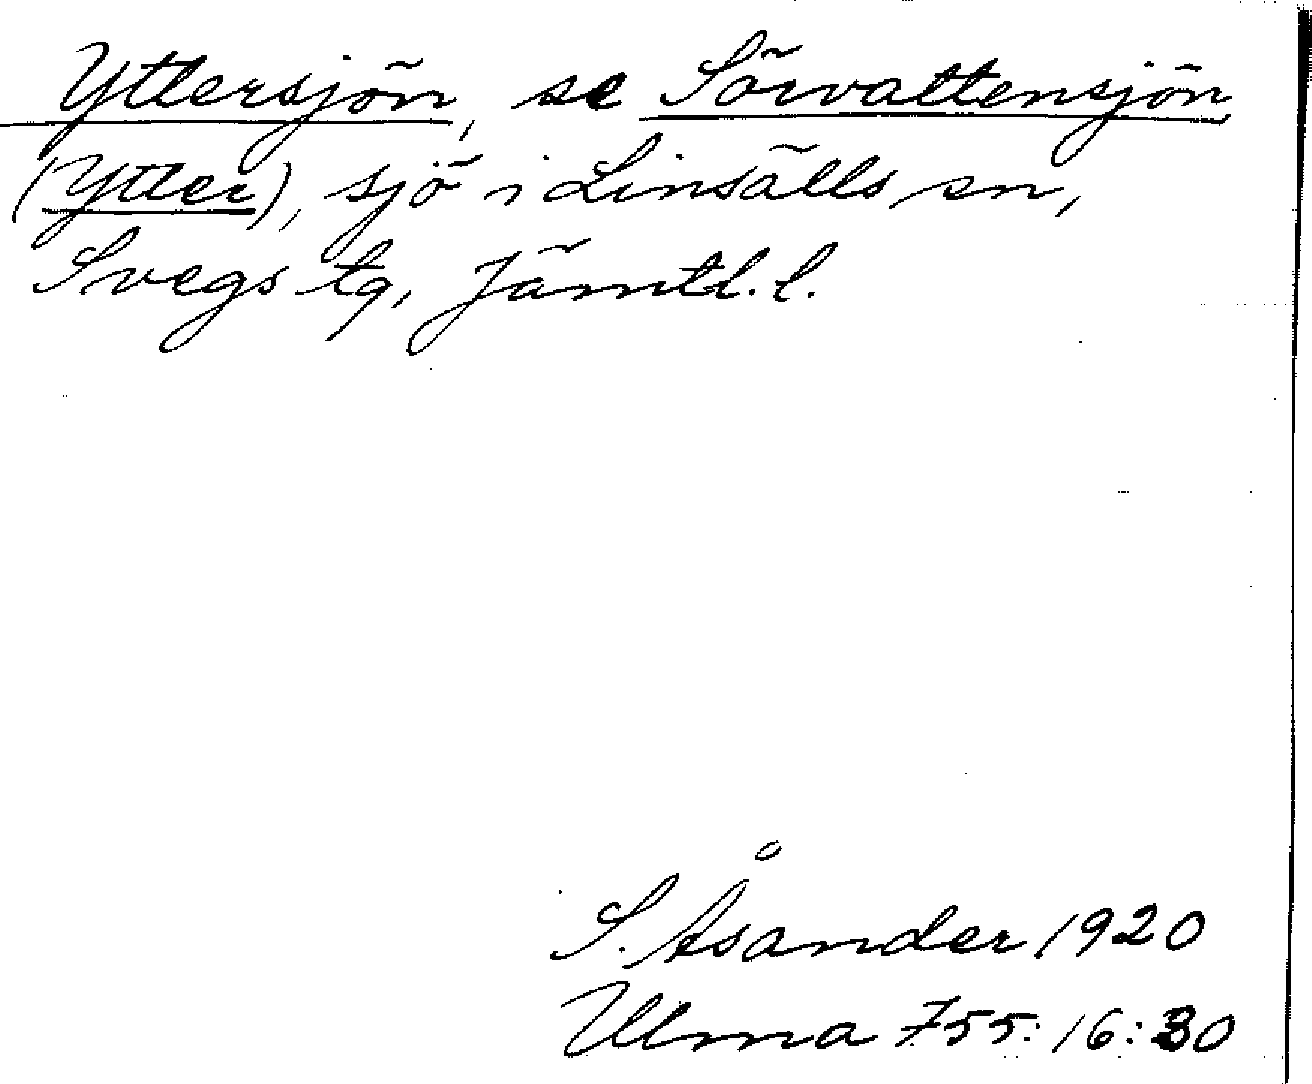 Yttersjön, se Sörvattensjön
(Ytter), sjö i Linsälls sn,
Svegs tg, Jämtl. l.
S. Åsander 1920
Ulma 755:16:30